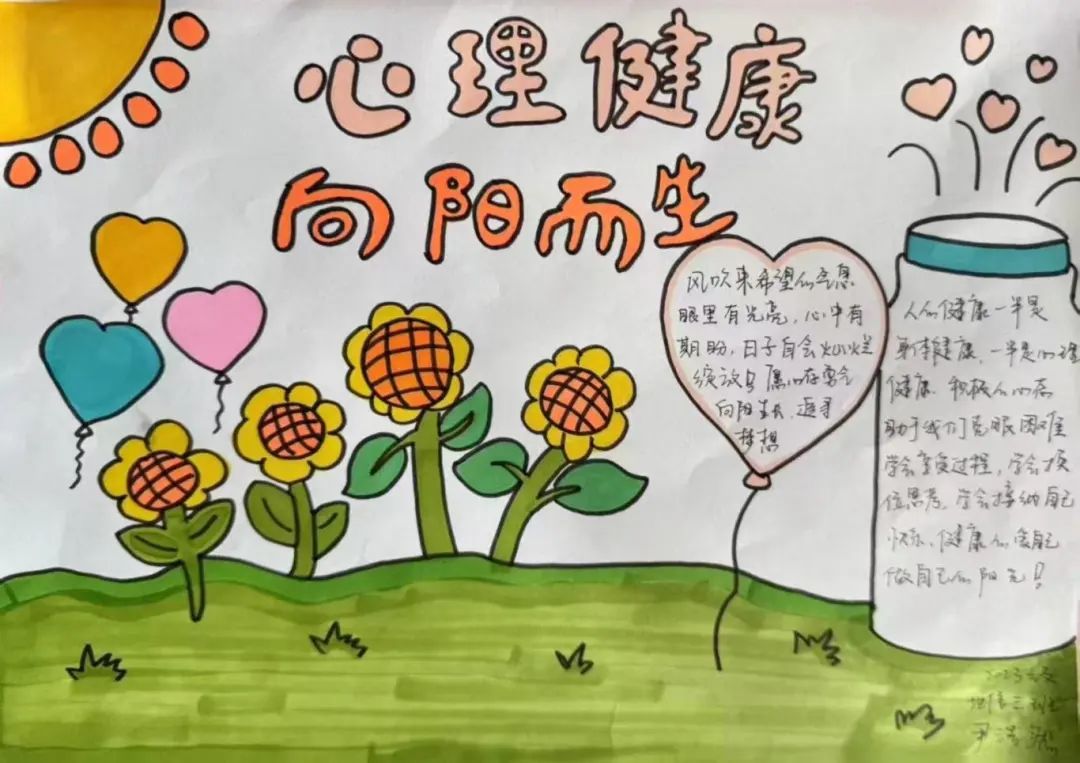 心理健康
向阳而生
风吹来希望的气息
眼里有光亮，心中有
期盼，日子自会灿烂
绽放 愿心存勇气
向阳生长，追寻
梦想
人的健康一半是
身体健康，一半是心理
健康 积极人心态
助于我们克服困难
学会享受过程，学会换
位思考，学会接纳自己
快乐、健康的爱自己
做自己的阳光！
2023级
地信三班
尹